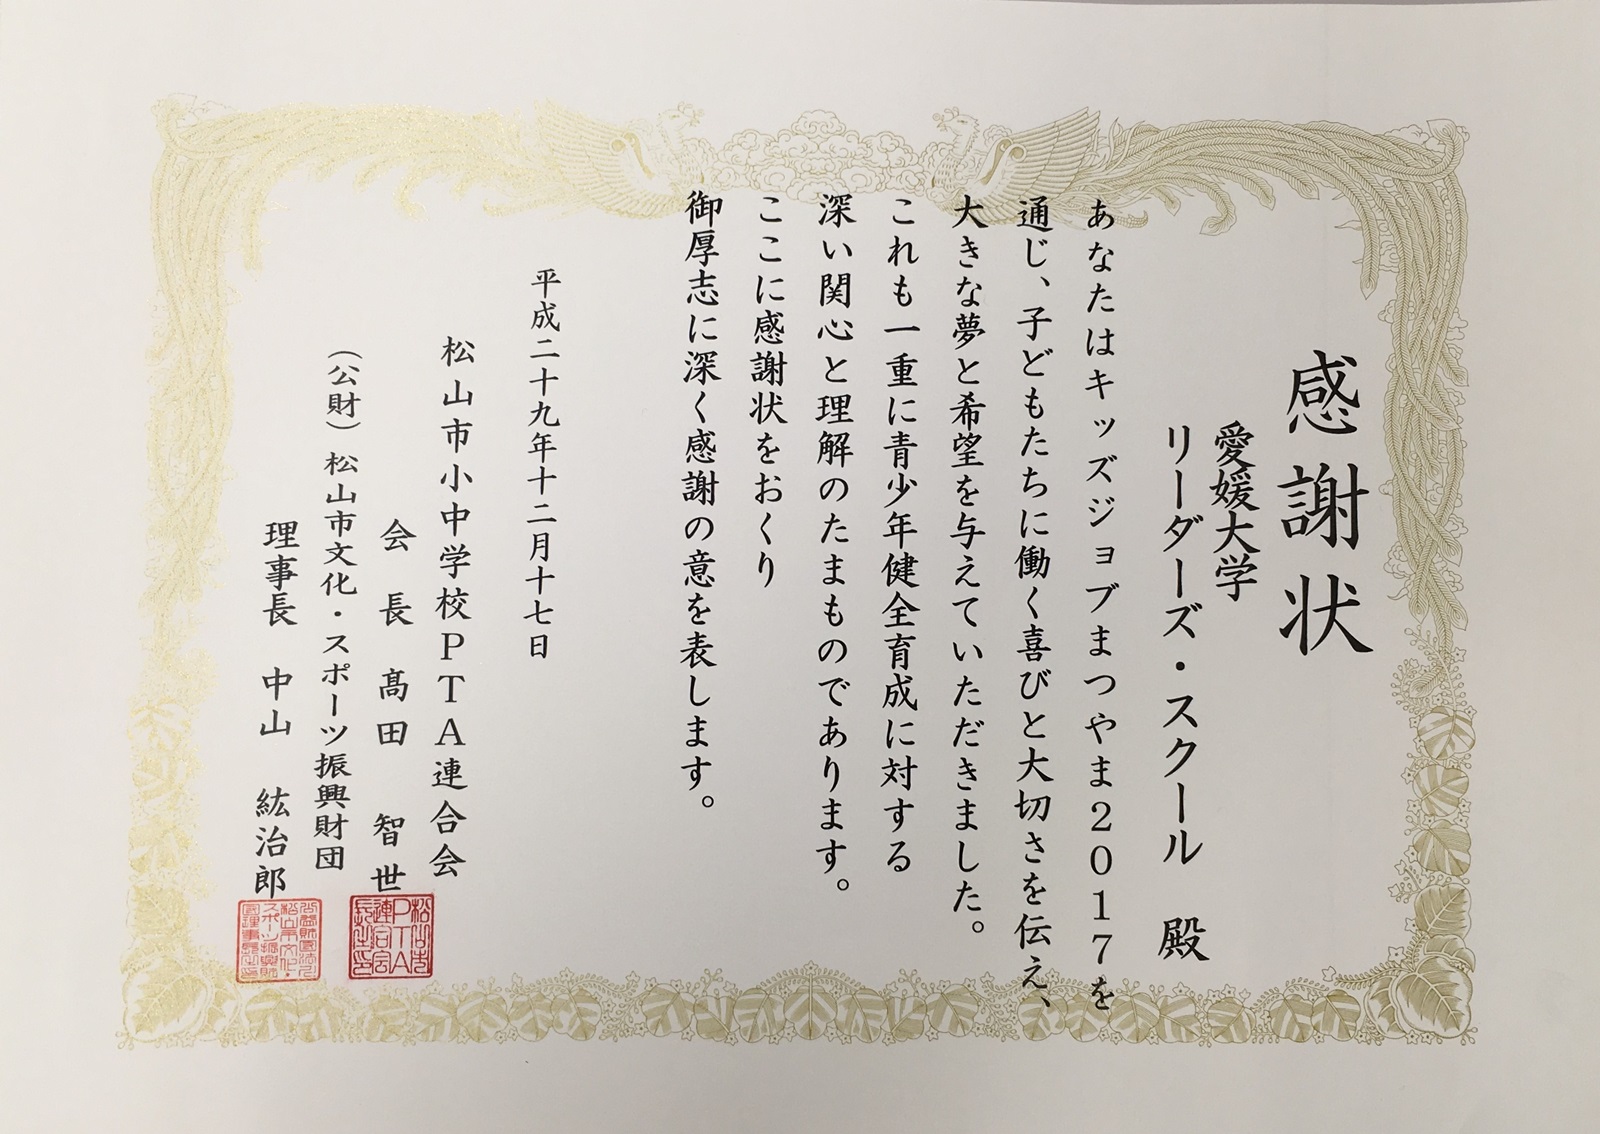 感謝状
愛媛大学
リーダーズ・スクール 殿
あなたはキッズジョブまつやま2017を
通じ、子どもたちに働く喜びと大切さを伝え、
大きな夢と希望を与えていただきました。
これも一重に青少年健全育成に対する
深い関心と理解のたまものであります。
ここに感謝状をおくり
御厚志に深く感謝の意を表します。
平成二十九年十二月十七日
松山市小中学校PTA連合会
会長 髙田 智世
（公財）松山市文化・スポーツ振興財団
理事長 中山 紘治郎